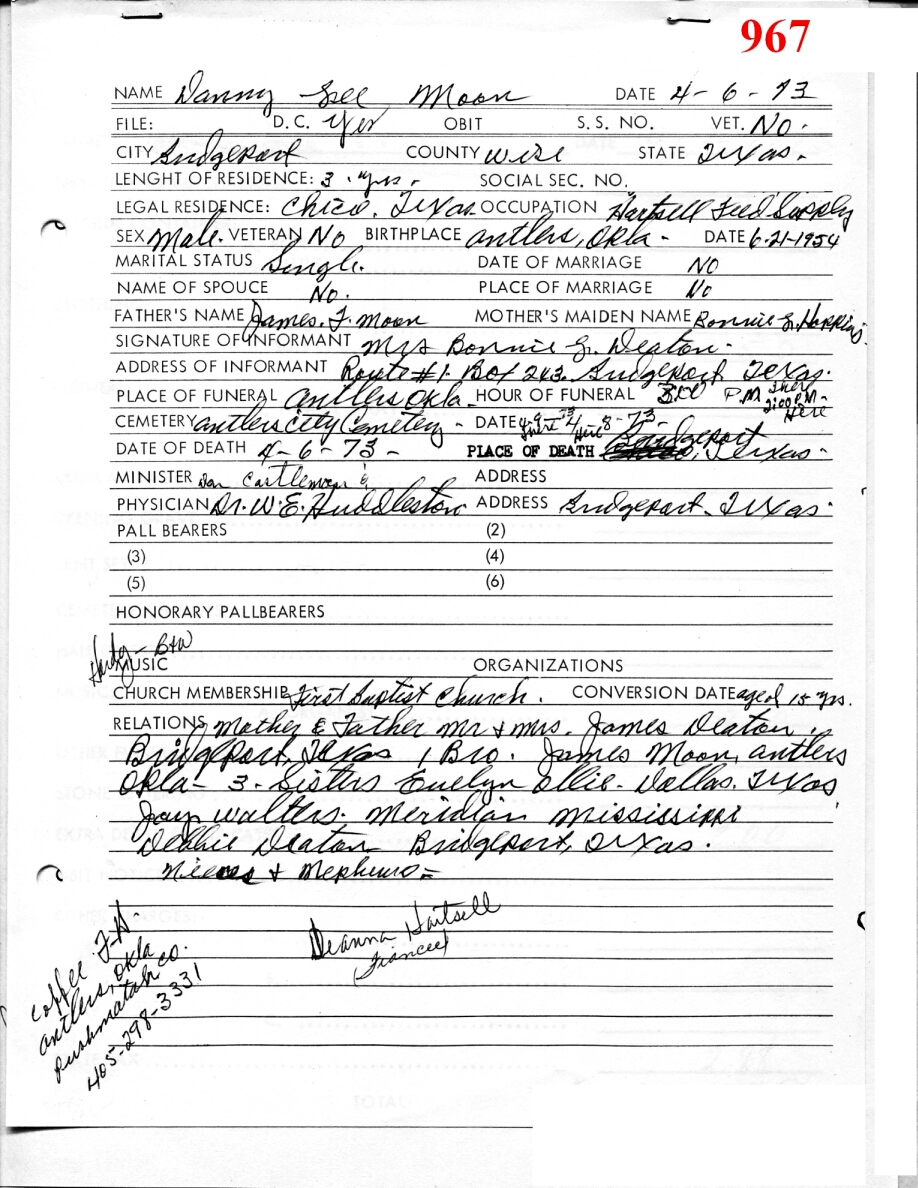 967
NAME Danny Lee Moon DATE 4-6-73
FILE: D.C. Yes OBIT S.S. NO. VET. No.
CITY Bridgeport COUNTY Wise STATE Texas.
LENGHT OF RESIDENCE: 3. yrs. SOCIAL SEC. NO.
LEGAL RESIDENCE: Chico. Texas OCCUPATION Hartsell Feed Supply
SEX Male. VETERAN No BIRTHPLACE Antlers, Okla - DATE 6-21-1954
MARITAL STATUS Single. DATE OF MARRIAGE NO
NAME OF SPOUCE No. PLACE OF MARRIAGE No
FATHER'S NAME James. F. Moon MOTHER'S MAIDEN NAME Bonnie G. Hopkins.
SIGNATURE OF INFORMANT Mrs Bonnie G. Deaton.
ADDRESS OF INFORMANT Route #1. Box 243. Bridgeport, Texas.
PLACE OF FUNERAL Antlers Okla. HOUR OF FUNERAL 3:00 P.M. There 2:00 P.M - Here
CEMETERY Antlers City Cemetery - DATE 4-9-73 There 4/8-73 - Here
DATE OF DEATH 4-6-73 - PLACE OF DEATH Bridgeport, Texas -
MINISTER Don Castleman ADDRESS
PHYSICIAN Dr. W.E. Huddleston ADDRESS Bridgeport. Texas.
PALL BEARERS (2)
(3) (4)
(5) (6)
HONORARY PALLBEARERS
MUSIC ORGANIZATIONS
CHURCH MEMBERSHIP First Baptist Church. CONVERSION DATE aged 15 yrs.
RELATIONS Mother & Father Mr & Mrs. James Deaton.
Bridgeport, Texas 1 Bro. James Moon, Antlers
Okla - 3 - Sisters Evelyn Ollie - Dallas, Texas
Joy Walters. Meridian Mississippi
Debbie Deaton Bridgeport, Texas.
Nieces & Nephews =
Deanna Hartsell
(Fiancee)
Coffee F-H
Antlers, Okla
Pushmatah Co.
405-298-3331